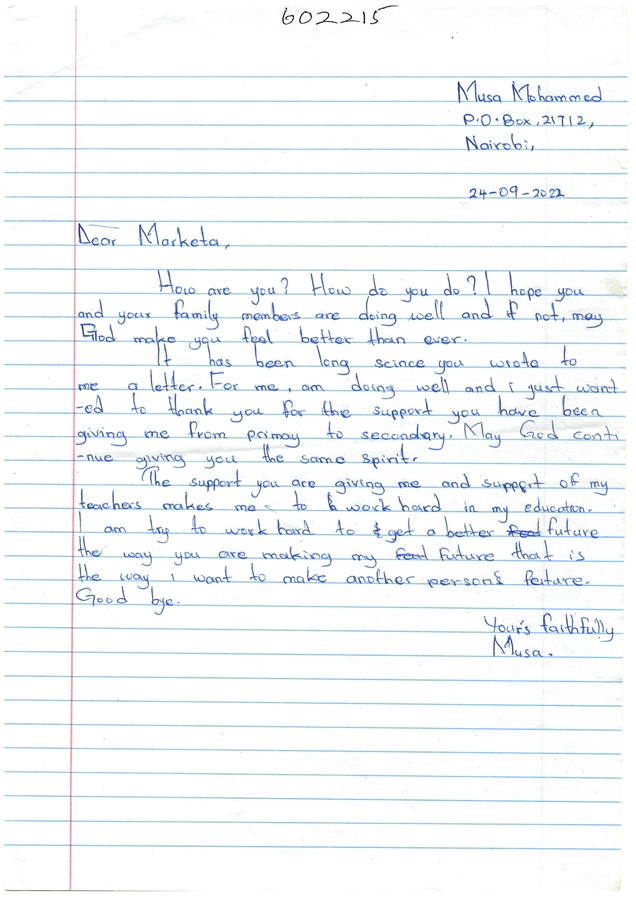 602215
Musa Mohammed
P.O. Box, 21712,
Nairobi,
24-09-2022
Dear Marketa,
How are you? How do you do? I hope you
and your family members are doing well and if not, may
God make you feel better than ever.
It has been long scince you wrote to
me a letter. For me, am doing well and i just want
-ed to thank you for the support you have been
giving me from primay to secondary. May God conti
-nue giving you the same spirit.
The support you are giving me and support of my
teachers makes me to work hard in my education.
I am try to work hard to get a better future
the way you are making my future that is
the way i want to make another person's feature.
Good bye.
Your's faithfully
Musa.